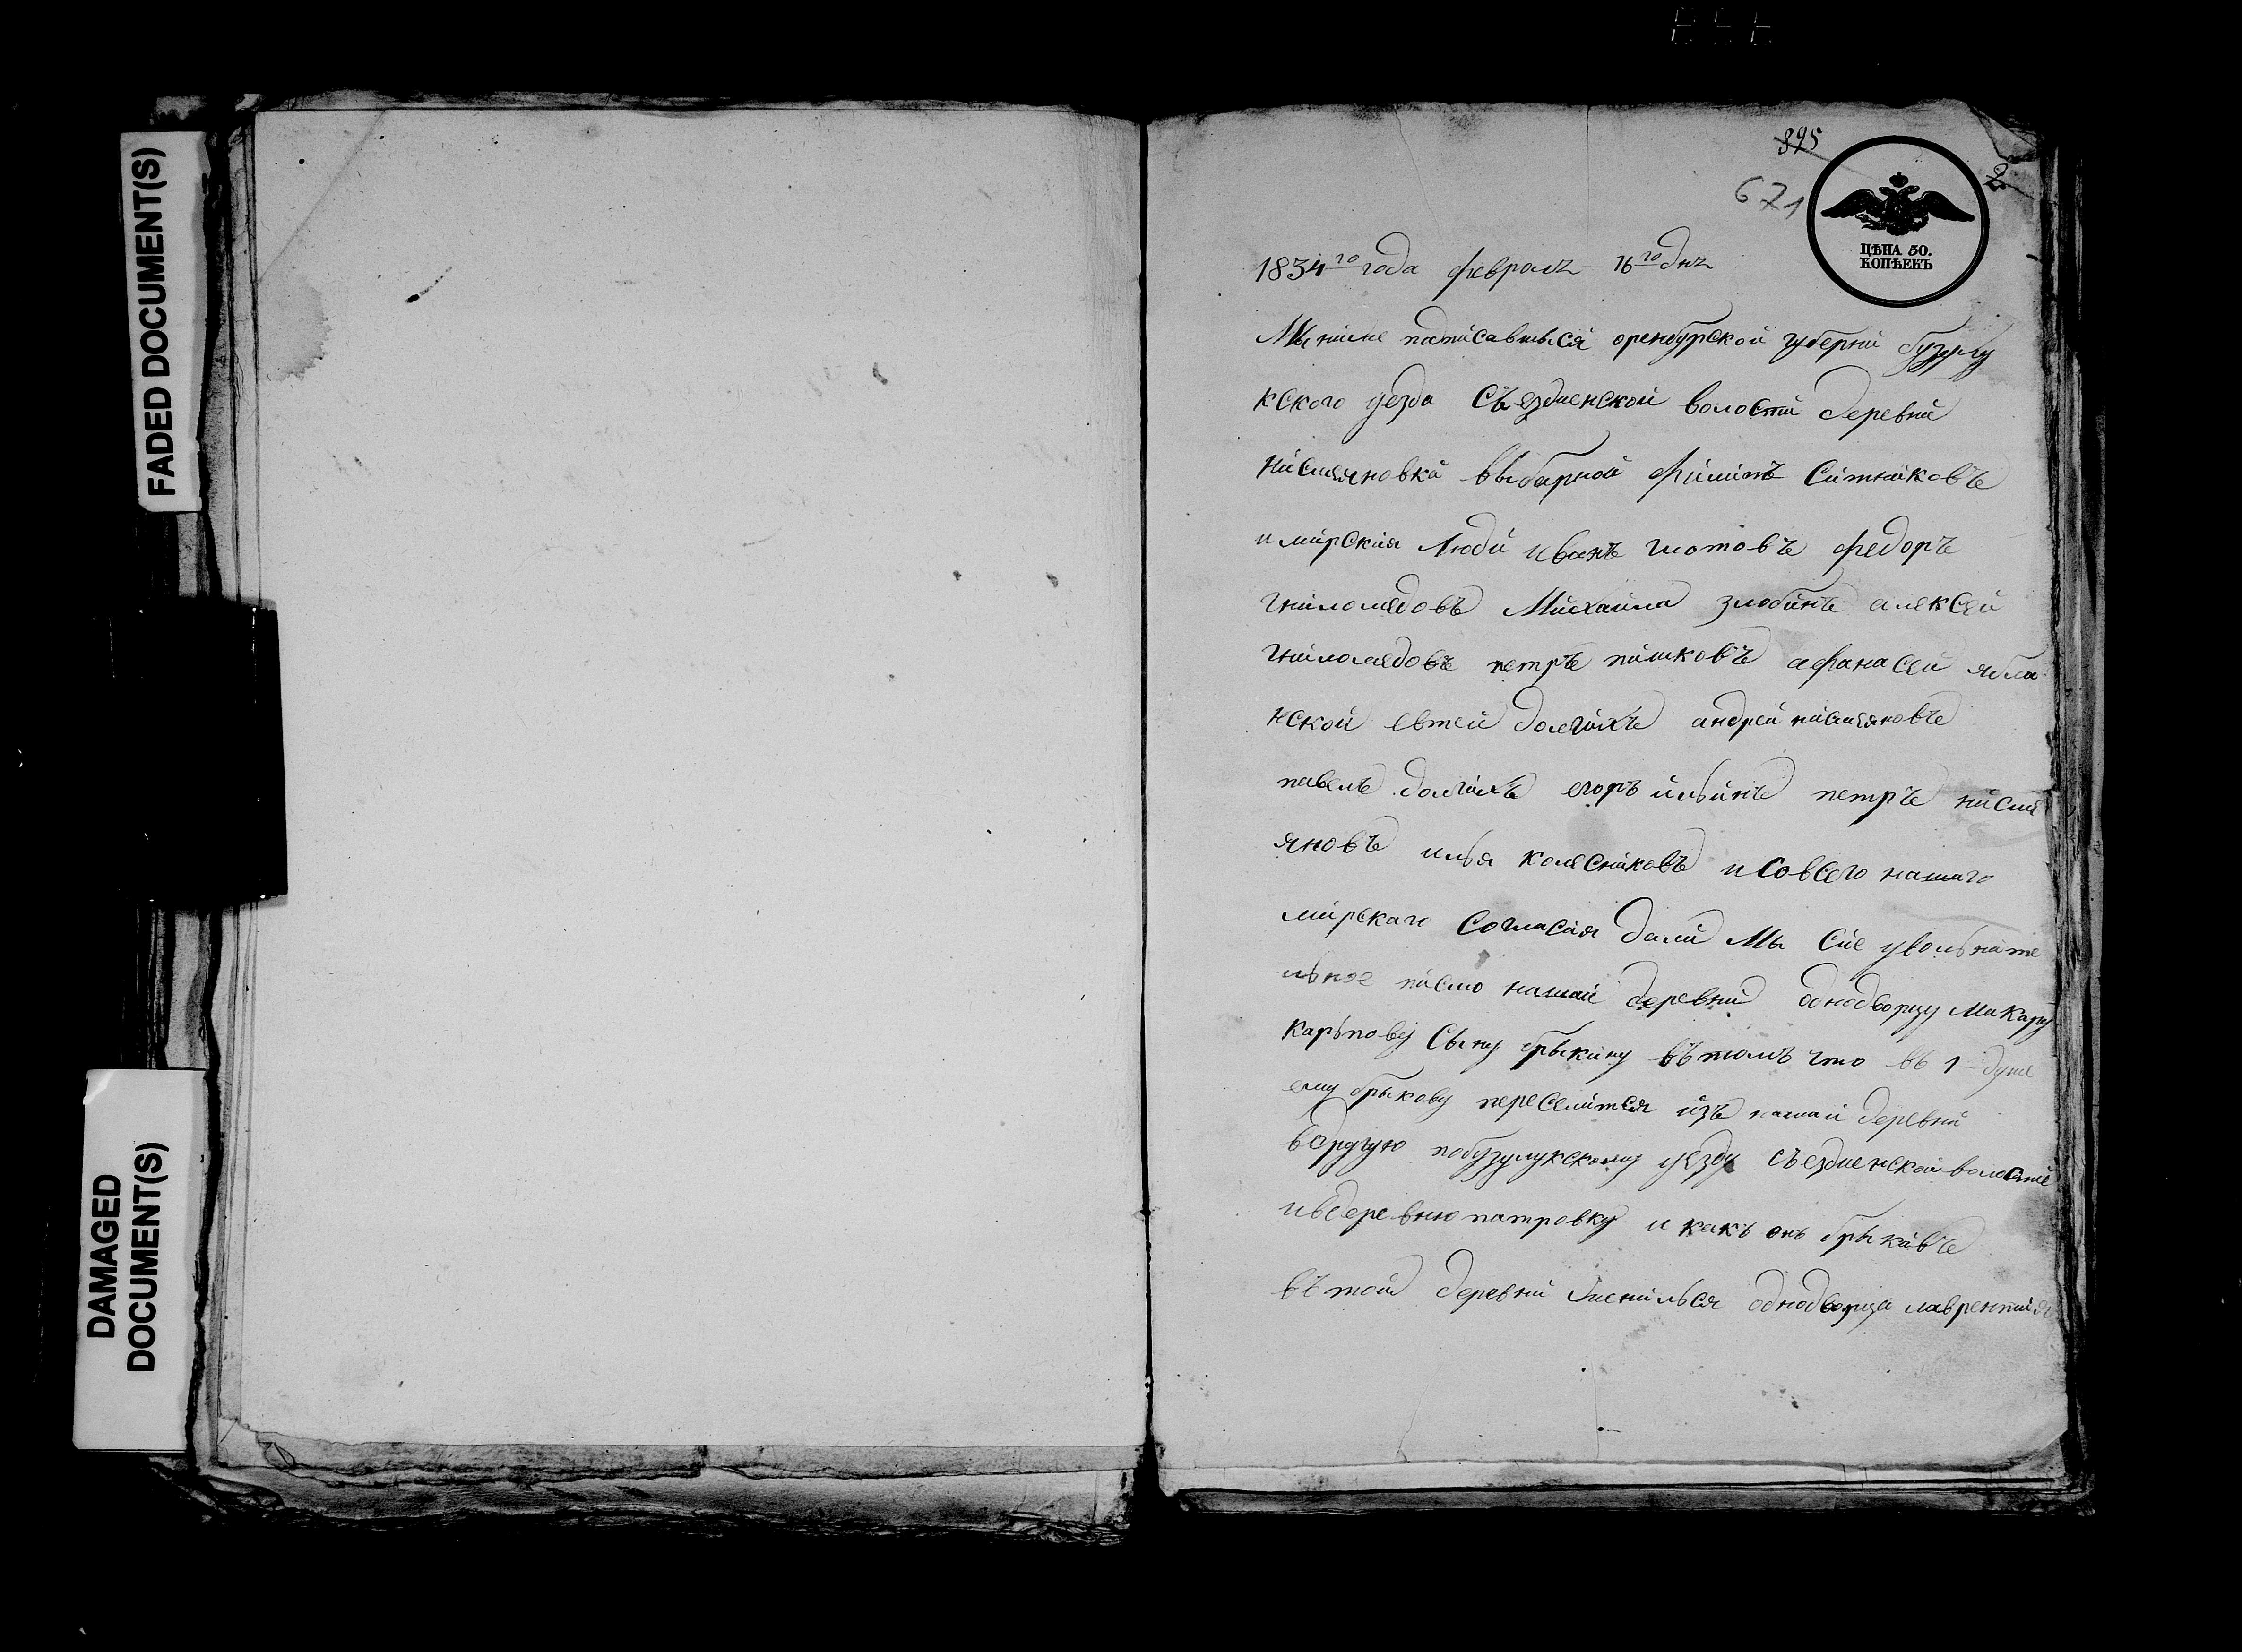 FADED DOCUMENT(S)
DAMAGED
DOCUMENT(S)
395
671
2
ЦѢНА 50.
КОПѢЕКЪ
1834го года февраля 16го дня
Мы ниже подписавшыся оренбурской губерни бузулу
кского уезда Съезженской волости деревни
выбарной филипъ Ситниковъ
и мирския люди иванъ глотовъ федоръ
гниломедовъ Михайла злобинъ алексей
гниломедовъ петръ пашковъ афанасей ябла
нской евтей долгихъ андрей
павелъ долгихъ егоръ ильинъ петръ
яновъ илья колесниковъ и Совсего нашаго
мирскаго Согласия дали Мы Сие увольнате
льное писмо нашай деревни однодворцу Макару
карьпову Сыну брыкину въ томъ что въ 1 душе
ему брыкову переселится изъ нашай деревни
вдругую побузулукскому уезду съезженской воласте
ивдеревню патровку и какъ онъ брыкавъ
въ той деревни однодворца лаврентийя